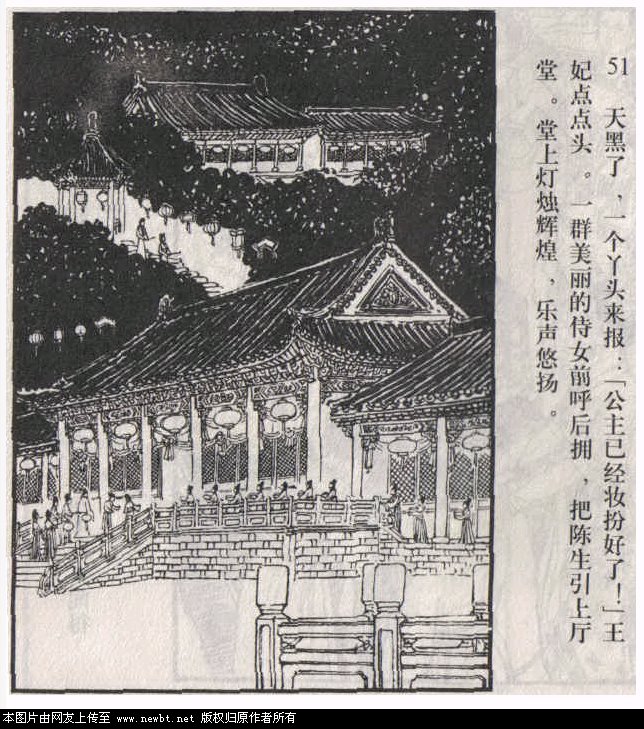 51 天黑了，一个丫头来报：「公主已经妆扮好了！」王
妃点点头。一群美丽的侍女前呼后拥，把陈生引上厅
堂。堂上灯烛辉煌，乐声悠扬。
本图片由网友上传至 www.newbt.net 版权归原作者所有